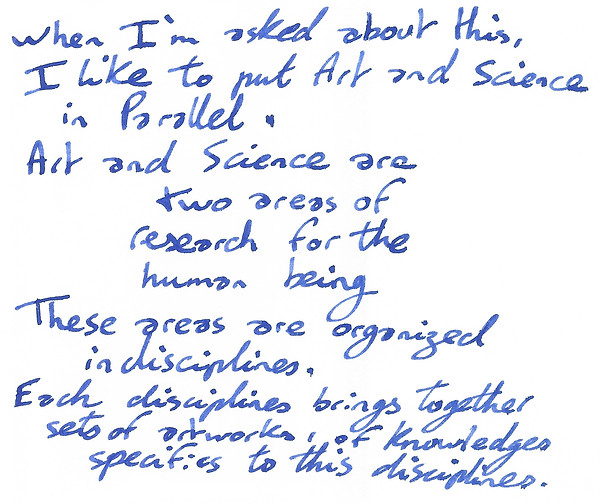 when I'm asked about this,
I like to put Art and Science
in Parallel.
Art and Science are
two areas of
research for the
human being
These areas are organized
in disciplines.
Each disciplines brings together
sets of artworks, of Knowledges
specifics to this disciplines.